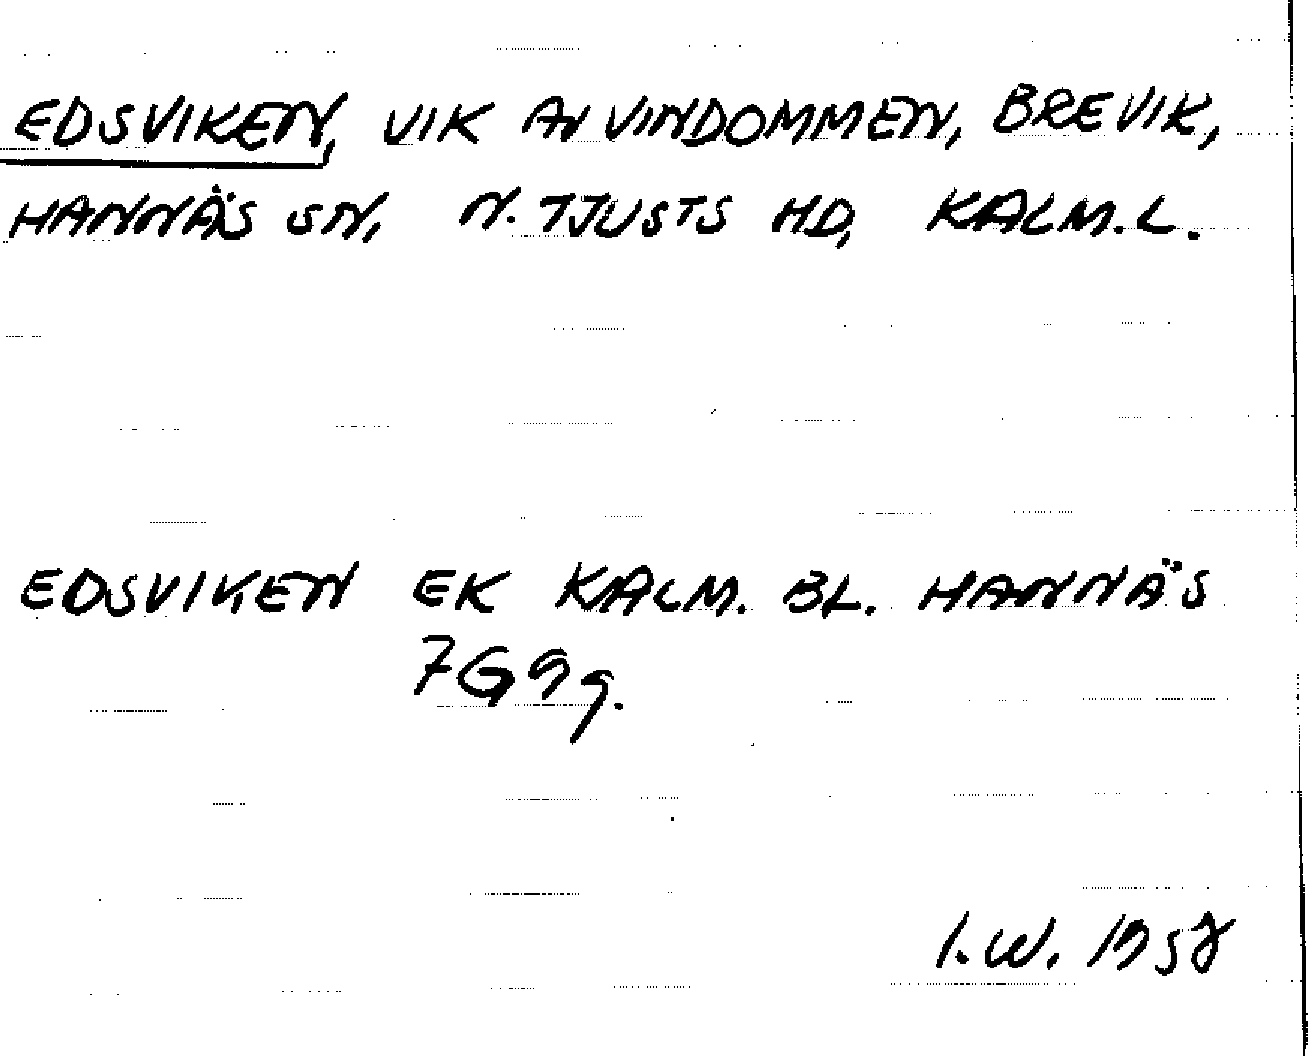 EDSVIKEN, VIK AV VINDOMMEN, BREVIK,
HANNÄS SN, N. TJUSTS HD, KALM. L.
EDSVIKEN EK KALM. BL. HANNÄS
7G9g.
I.W. 1958